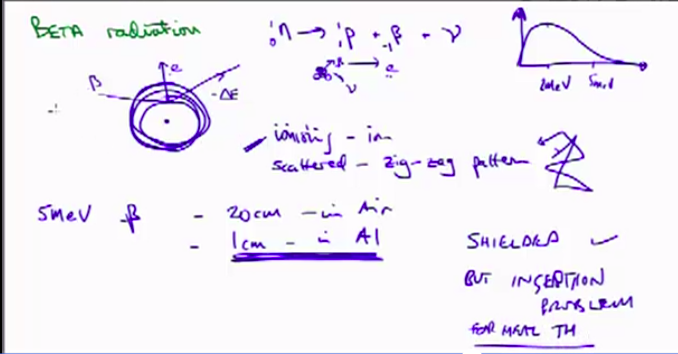 BETA radiation
¹₀n → ¹₁p + ₋₁β + ν
e
ν
2MeV 5MeV
β
e
-ΔE
ionising - in
scattered - zig-zag pattern
5MeV β - 20cm - in Air
- 1cm - in Al
SHIELDED ✓
BUT INGESTION
PROBLEM
FOR HEALTH